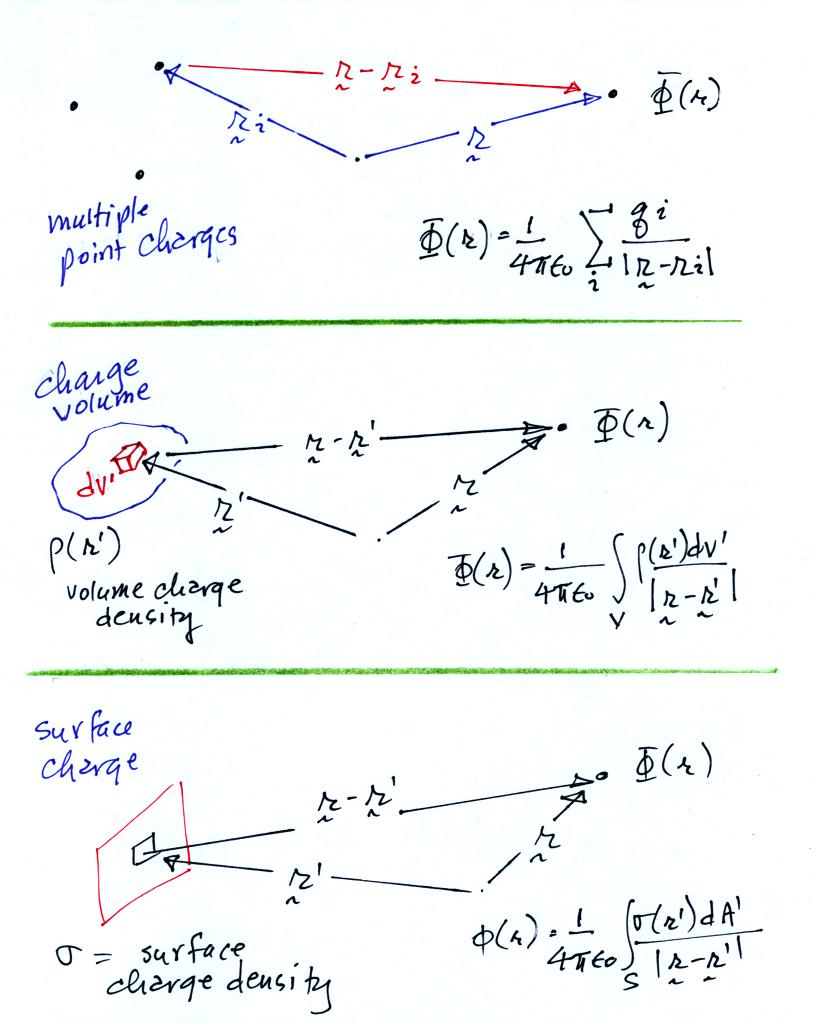 r̰ - r̰ i
Φ(r)
r̰ i
r̰
multiple
point charges
Φ(r) = 1/4πϵ₀ ∑ᵢ qi/|r̰ - ri|
charge
volume
r̰ - r̰'
Φ(r)
dv'
r̰'
r̰
ρ(r')
volume charge
density
Φ(r) = 1/4πϵ₀ ∫ᵥ ρ(r')dv'/|r̰ - r̰'|
surface
charge
r̰ - r̰'
Φ(r)
r̰
r̰'
σ = surface
charge density
ϕ(r) = 1/4πϵ₀ ∫ₛ σ(r')dA'/|r̰ - r̰'|